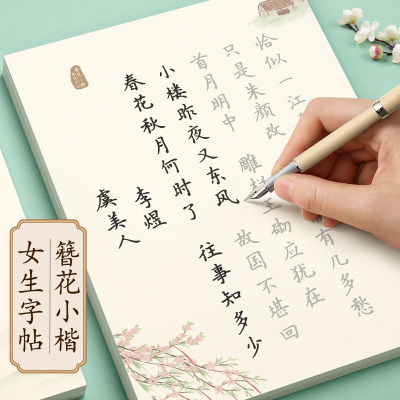 虞美人
李煜
春花秋月何时了
往事知多少
小楼昨夜又东风
故国不堪回
首月明中
雕 砌应犹在
只是朱颜改
有几多愁
恰似一江
簪花小楷
女生字帖